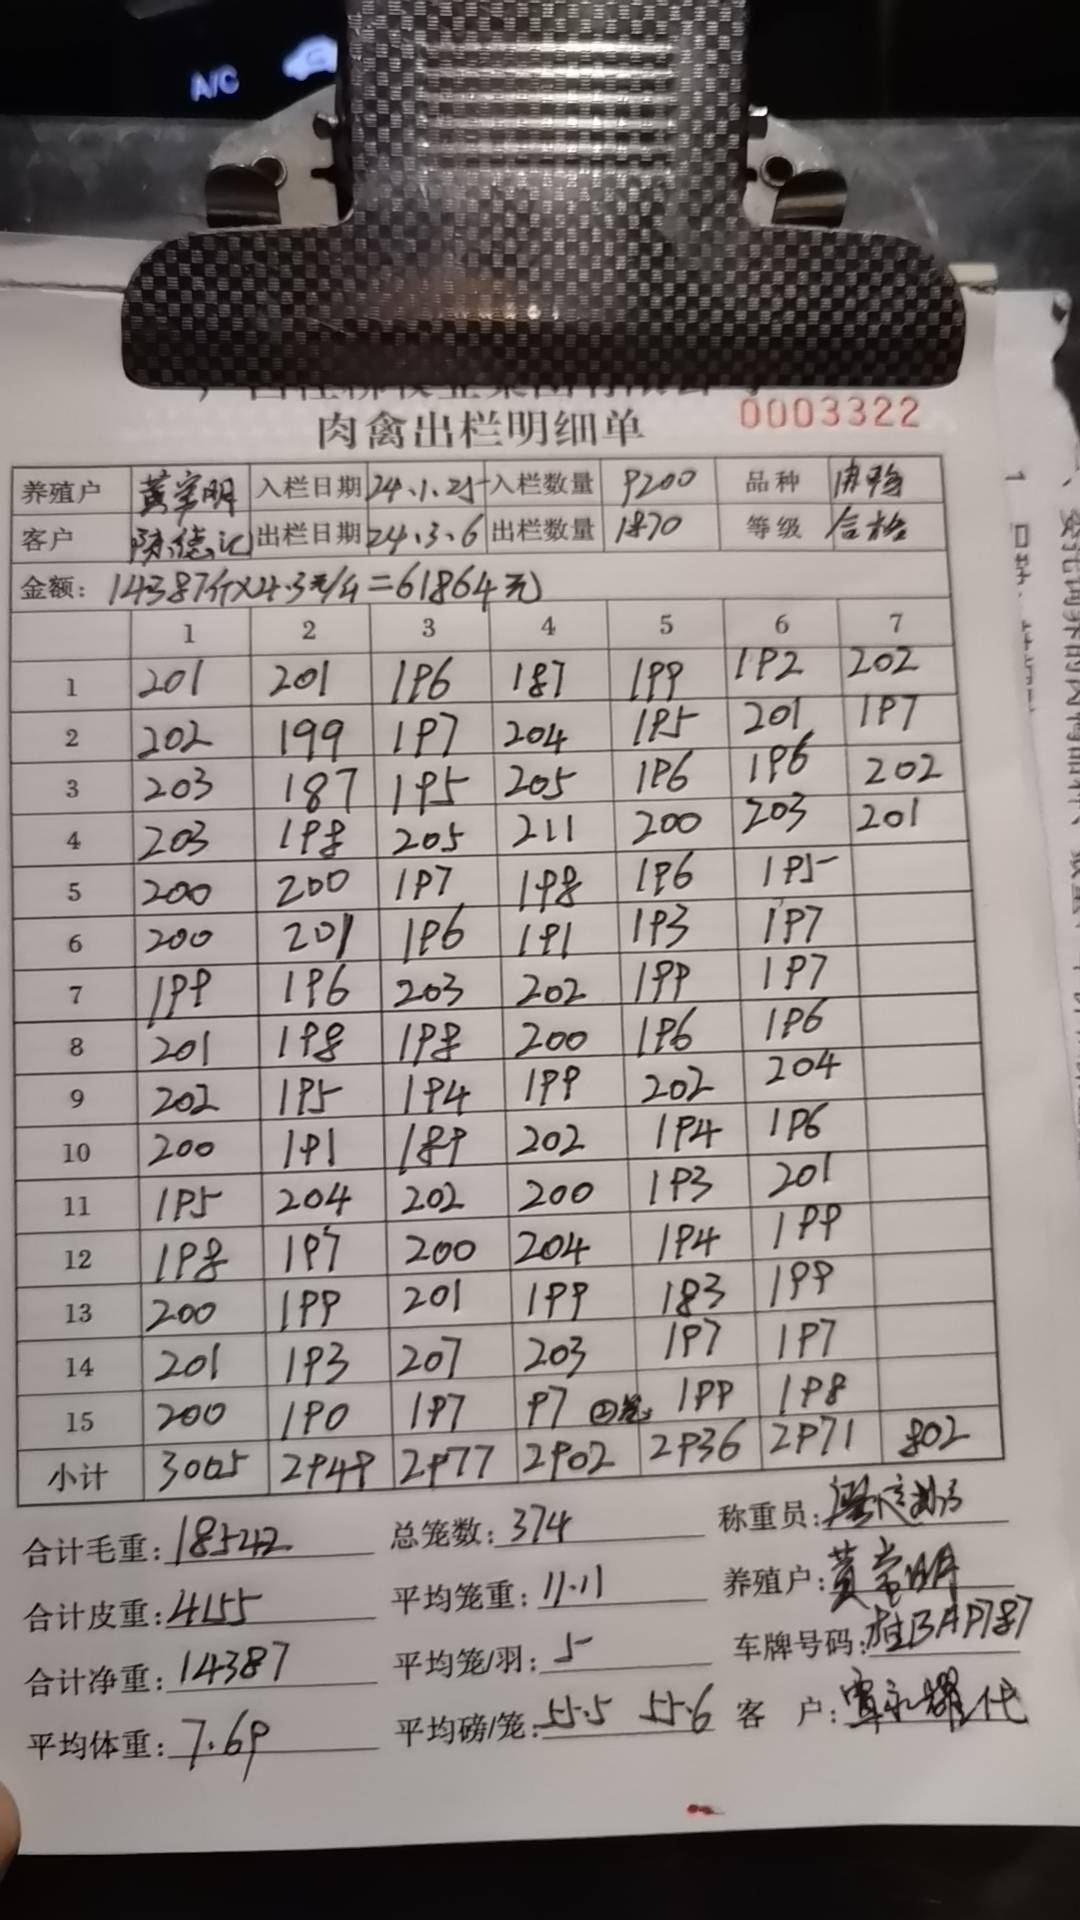 A/C
肉禽出栏明细单 0003322
养殖户 黄常明 入栏日期 24.1.25 入栏数量 9200 品种
客户 陈德记 出栏日期 24.3.6 出栏数量 1870 等级 合格
金额: 14387斤×4.3元/斤=61864元
1 2 3 4 5 6 7
1 201 201 196 187 199 192 202
2 202 199 197 204 195 201 197
3 203 187 195 205 196 196 202
4 203 198 205 211 200 203 201
5 200 200 197 198 196 195
6 200 201 196 191 193 197
7 199 196 203 202 199 197
8 201 198 198 200 196 196
9 202 195 194 199 202 204
10 200 191 189 202 194 196
11 195 204 202 200 193 201
12 198 197 200 204 194 199
13 200 199 201 199 183 199
14 201 193 207 203 197 197
15 200 190 197 97 ②笼 199 198
小计 3005 2949 2977 2902 2936 2971 802
合计毛重: 18542 总笼数: 374 称重员:
合计皮重: 4155 平均笼重: 11.11 养殖户: 黄常明
合计净重: 14387 平均笼/羽: 5 车牌号码: 桂BAP787
平均体重: 7.69 平均磅/笼: 55.5 55.6 客 户: 覃永耀代